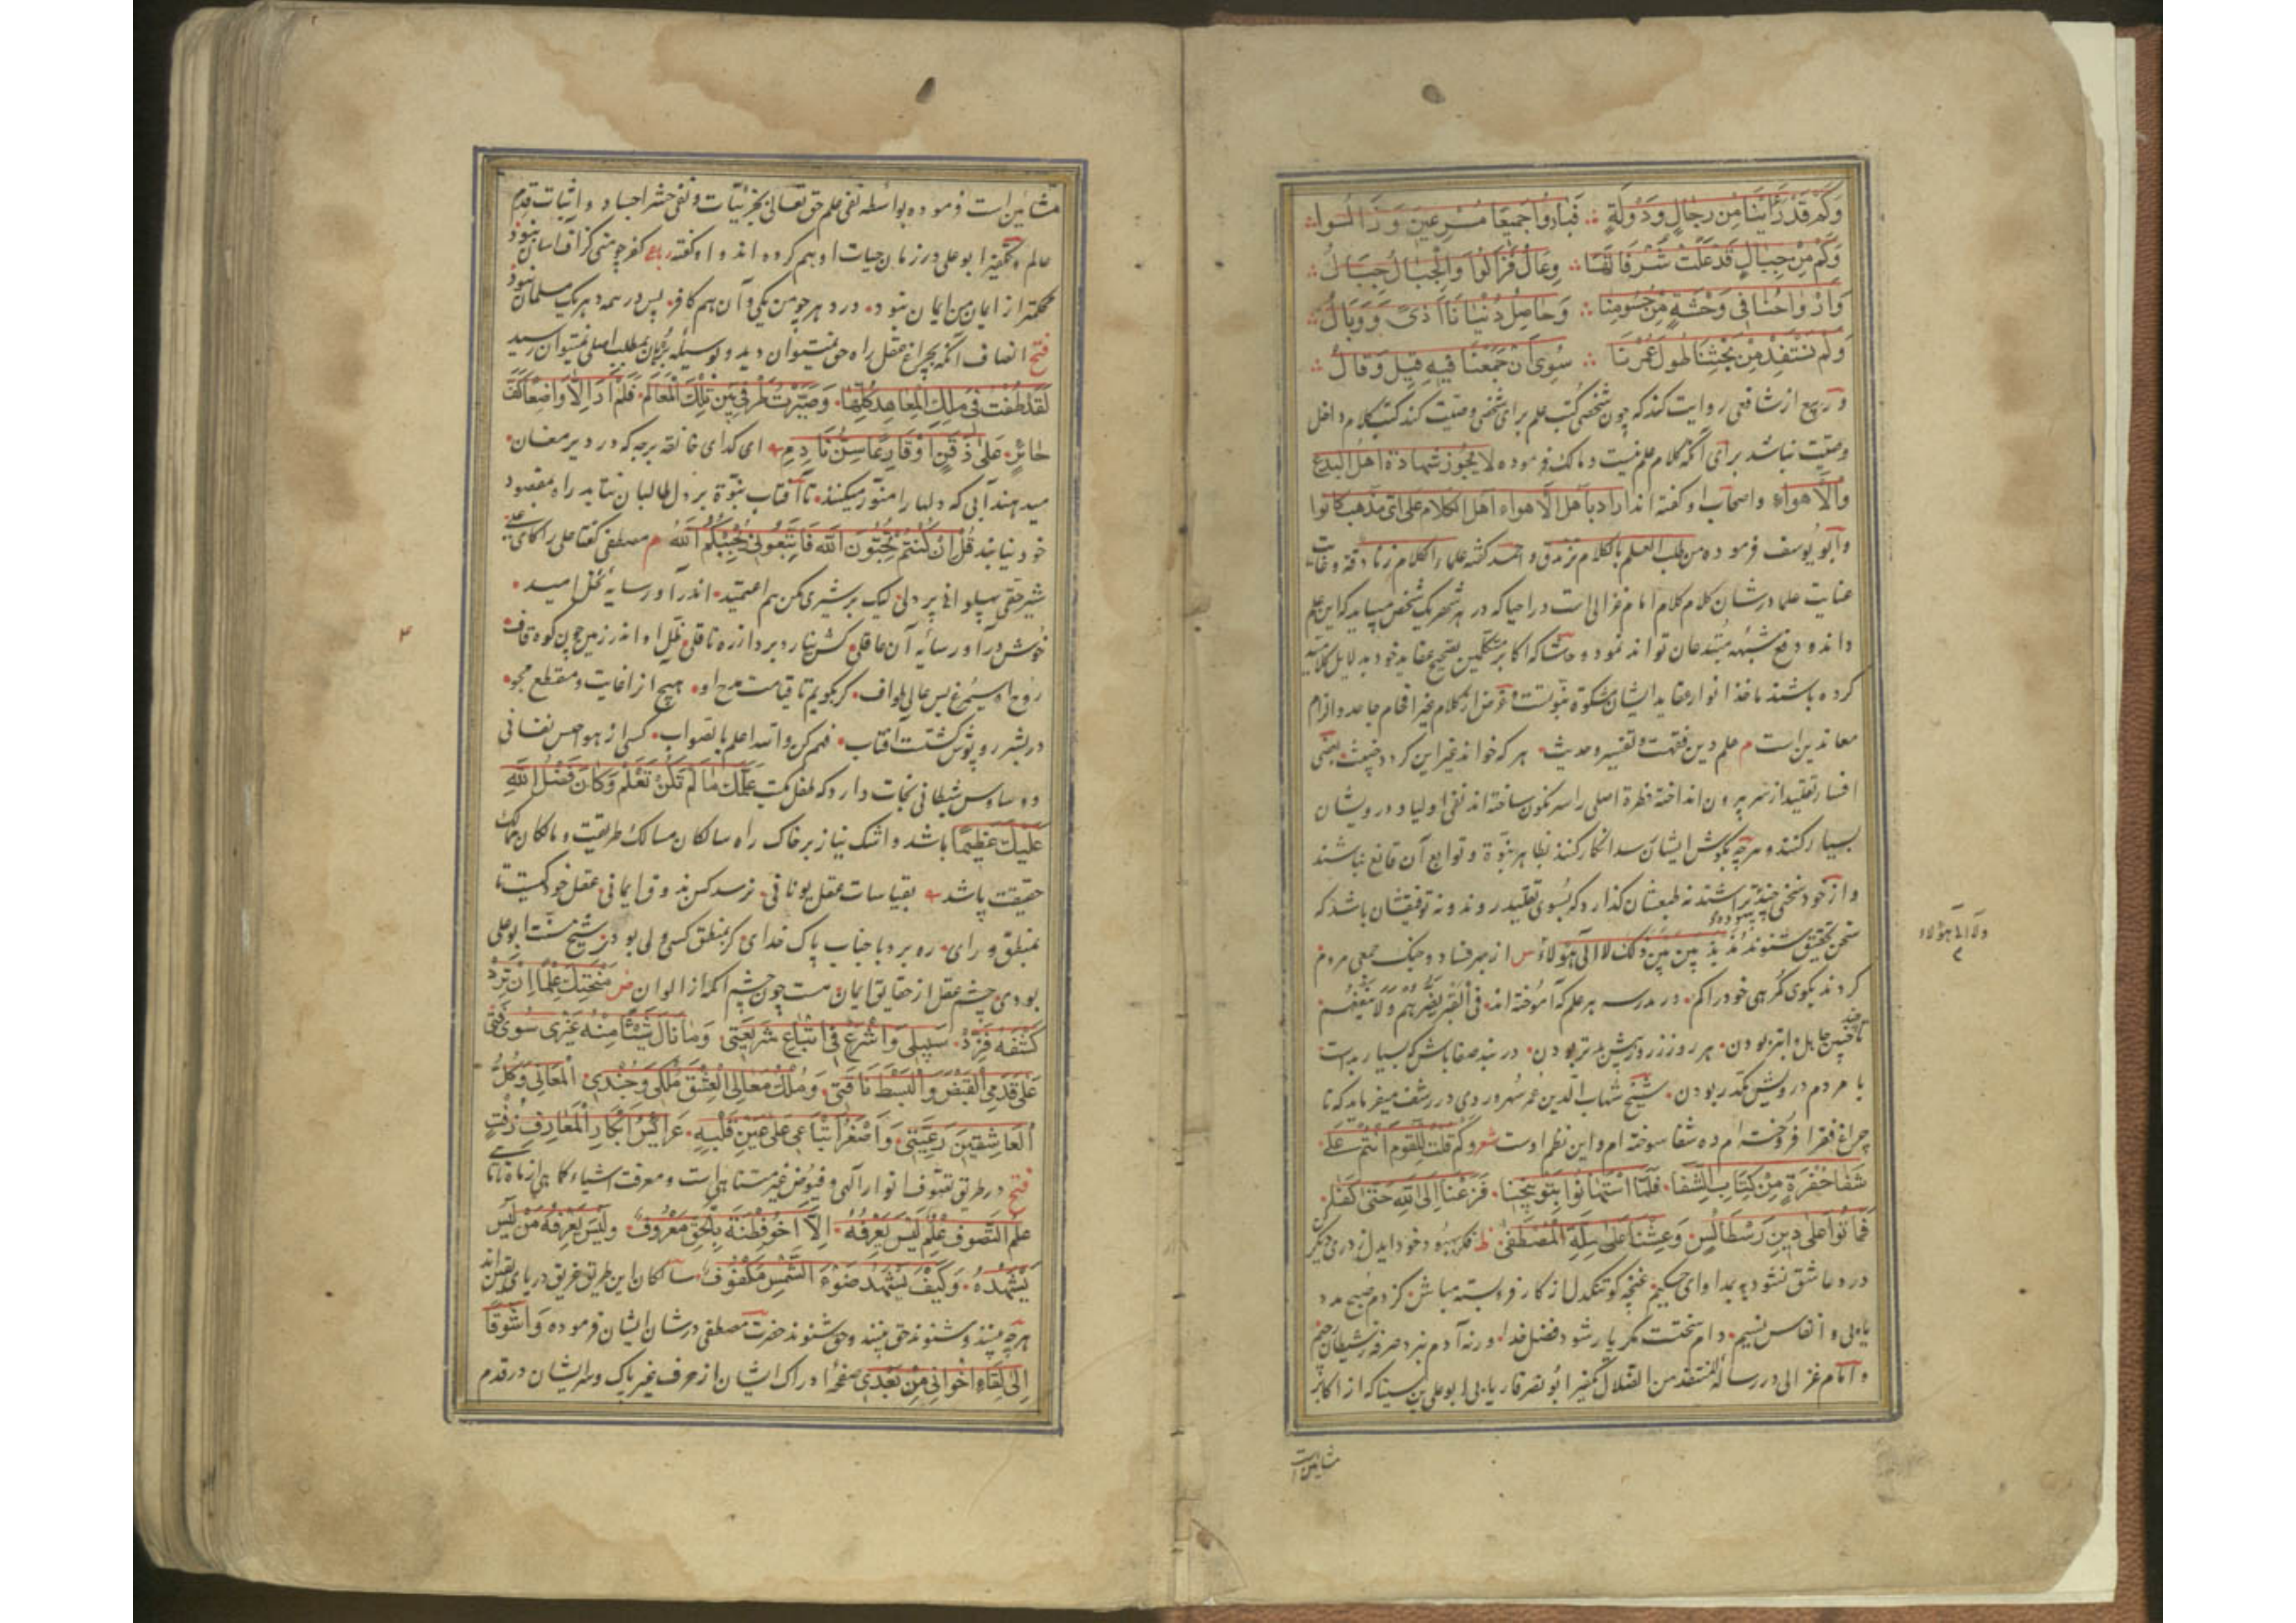 وَكَمْ قَدْ رَأَيْنَا مِنْ رِجَالٍ وَدَوْلَةٍ ∴ فَبَادُوا جَمِيعًا مُسْرِعِينَ وَزَالُوا ∴
وَكَمْ مِنْ جِبَالٍ قَدْ عَلَتْ شُرُفَاتِهَا ∴ رِجَالٌ فَزَالُوا وَالْجِبَالُ جِبَالُ ∴
وَأَرْوَاحُنَا فِي وَحْشَةٍ مِنْ جُسُومِنَا ∴ وَحَاصِلُ دُنْيَانَا أَذًى وَوَبَالُ ∴
وَلَمْ نَسْتَفِدْ مِنْ بَحْثِنَا طُولَ عُمْرِنَا ∴ سِوَى أَنْ جَمَعْنَا فِيهِ قِيلَ وَقَالُ ∴
و ربیع از شافعی روایت کند که چون شخصی کتب علم برای شخصی وصیت کند کتب کلام داخل
وصیت نباشد برای آنکه کلام علم نیست و مالک فرموده لا یجوز شهادة اهل البدع
والاهواء واصحاب او گفته اند اراد باهل الاهواء اهل الکلام علی ای مذهب کانوا
وابو یوسف فرموده من طلب العلم بالکلام تزندق و احمد گفته علماء الکلام زنادقة و غایت
عنایت علما در شان کلام کلام امام غزالی است در احیا که در هر شهر یک شخص میباید که این علم
داند و دفع شبهه مبتدعان تواند نمود و حاشا که اکابر متکلمین تصحیح عقاید خود بدلایل کلامیه
کرده باشند ماخذ انوار عقاید ایشان مشکوة نبوتست و غرض از کلام غیر افحام جاحد و الزام
معاندین است م علم دین فقهست و تفسیر و حدیث هر که خواند غیر این گردد خبیث بعضی
افسار تقلید از سر بیرون انداخته فطرة اصلی را سرنگون ساخته اند نفی اولیا و درویشان
بسیار کنند و هر چه بگوش ایشان رسد انکار کنند بظاهر نبوة و توابع آن قانع نباشند
و از خود سخنی چند تراشند نه طبعشان گذارد که بسوی تقلید روند و نه توفیقشان باشد که
سخن تحقیق شنوند مذبذبین بین ذلک لا الی هؤلاء س از بهر فساد و جنگ جمعی مردم
ولا الی هؤلاء
کردند بکوی گمرهی خود را گم در مدرسه هر علم که آموخته اند فی القبر یضرهم ولا ینفعهم
تا چند چنین جاهل و ابتر بودن هر روز ز روز پیش بدتر بودن در بند صفا باش که بسیار بدست
با مردم درویش مکدر بودن شیخ شهاب الدین عمر سهروردی در رشف میفرماید که تا
چراغ فقر افروخته ام ده شفا سوخته ام و این نظم اوست شعر وَكَمْ قُلْتُ لِلْقَوْمِ أَنْتُمْ عَلَى
شَفَا حُفْرَةٍ مِنْ كِتَابِ الشِّفَا فَلَمَّا اسْتَهَانُوا بِتَوْبِيخِنَا فَزِعْنَا إِلَى اللَّهِ حَتَّى كَفَى
فَمَاتُوا عَلَى دِينِ رَسْطَالِسَ وَعِشْنَا عَلَى مِلَّةِ الْمُصْطَفَى ظ فکر بهبود خود ایدل ز دری دیگر کن
درد عاشق نشود به بمداوای حکیم غنچه گو تنگدل از کار فروبسته مباش کز دم صبح مدد
یابی و انفاس نسیم دام سختست مگر یار شود فضل خدا ورنه آدم نبرد صرفه ز شیطان رجیم
و امام غزالی در رساله المنقذ من الضلال تکفیر ابو نصر فاریابی و ابو علی بن سینا که از اکابر
مشایین است
مشایین است فرموده بواسطه نفی علم حق تعالی بجزئیات و نفی حشر اجساد و اثبات قدم
عالم و تکفیر ابو علی در زمان حیات او هم کرده اند و او گفته رباعی کفر چو منی گزاف آسان نبود
محکمتر از ایمان من ایمان نبود در دهر چو من یکی و آن هم کافر پس در همه دهر یک مسلمان نبود
فتح انصاف آنکه بچراغ عقل راه حق نمیتوان دید و بوسیله برهان بمطلب اصلی نمیتوان رسید
لَقَدْ طُفْتُ فِي تِلْكَ الْمَعَاهِدِ كُلِّهَا وَصَيَّرْتُ طَرْفِي بَيْنَ تِلْكَ الْمَعَالِمِ فَلَمْ أَرَ إِلَّا وَاضِعًا كَفَّ
حَائِرٍ عَلَى ذَقَنٍ أَوْ قَارِعًا سِنَّ نَادِمِ ای گدای خانقه برجه که در دیر مغان
میدهند آبی که دلها را منور میکنند تا آفتاب نبوة بر دل طالبان نتابد راه بمقصود
خود نیابند قُلْ إِنْ كُنْتُمْ تُحِبُّونَ اللَّهَ فَاتَّبِعُونِي يُحْبِبْكُمُ اللَّهُ م مصطفی گفتا علی را کای علی
شیر حقی پهلوانی پر دلی لیک بر شیری مکن هم اعتمید اندرآ در سایه نخل امید
خوش درآ در سایه آن عاقلی کش نیارد برد از ره ناقلی ظل او اندر زمین چون کوه قاف
روح او سیمرغ بس عالی طواف گر بگویم تا قیامت مدح او هیچ آنرا غایت و مقطع مجو
در بشر روپوش گشتست آفتاب فهم کن والله اعلم بالصواب کسی از هواجس نفسانی
و وساوس شیطانی نجات دارد که طفل مکتب عَلَّمَكَ مَا لَمْ تَكُنْ تَعْلَمُ وَكَانَ فَضْلُ اللَّهِ
عَلَيْكَ عَظِيمًا باشد و اشک نیاز بر خاک راه سالکان مسالک طریقت و مالکان ممالک
حقیقت پاشد بقیاسات عقل یونانی نرسد کس بذوق ایمانی عقل خود کیست تا
بمنطق و رای ره برد با جناب پاک خدای گر بمنطق کسی ولی بودی شیخ سنت ابو علی
بودی چشم عقل از حقایق ایمان هست چون چشم اکمه از الوان ض مَنَحْتُكَ عِلْمًا إِنْ تُرِدْ
كَشْفَهُ فَرِدْ سَبِيلِي وَاشْرَعْ فِي اتِّبَاعِ شَرِيعَتِي وَمَا نَالَ شَيْئًا مِنْهُ غَيْرِي سِوَى فَتًى
عَلَى قَدَمِي فِي الْقَبْضِ وَالْبَسْطِ مَا فَتِي وَمُلْكُ مَعَالِي الْعِشْقِ مُلْكِي وَجُنْدِيَ الْمَعَانِي وَكُلُّ
الْعَاشِقِينَ رَعِيَّتِي وَأَصْغَرُ أَتْبَاعِي عَلَى عَيْنِ قَلْبِهِ عَرَائِسُ أَبْكَارِ الْمَعَارِفِ زُفَّتِ
فتح در طریق تصوف انوار الهی و فیوض غیر متناهی است و معرفت اشیاء کما هی از ماه تا ماهی
عِلْمُ التَّصَوُّفِ عِلْمٌ لَيْسَ يَعْرِفُهُ إِلَّا أَخُو فِطْنَةٍ بِالْحَقِّ مَعْرُوفُ وَلَيْسَ يَعْرِفُهُ مَنْ لَيْسَ
يَشْهَدُهُ وَكَيْفَ يَشْهَدُ ضَوْءَ الشَّمْسِ مَكْفُوفُ سالکان این طریق غریق دریای یقین اند
هر چه بینند و شنوند حق بینند و حق شنوند حضرت مصطفی در شان ایشان فرموده وَاشَوْقَا
إِلَى لِقَاءِ إِخْوَانِي مِنْ بَعْدِي صفحه ادراک ایشان از حرف غیر پاک و سر ایشان در قدم